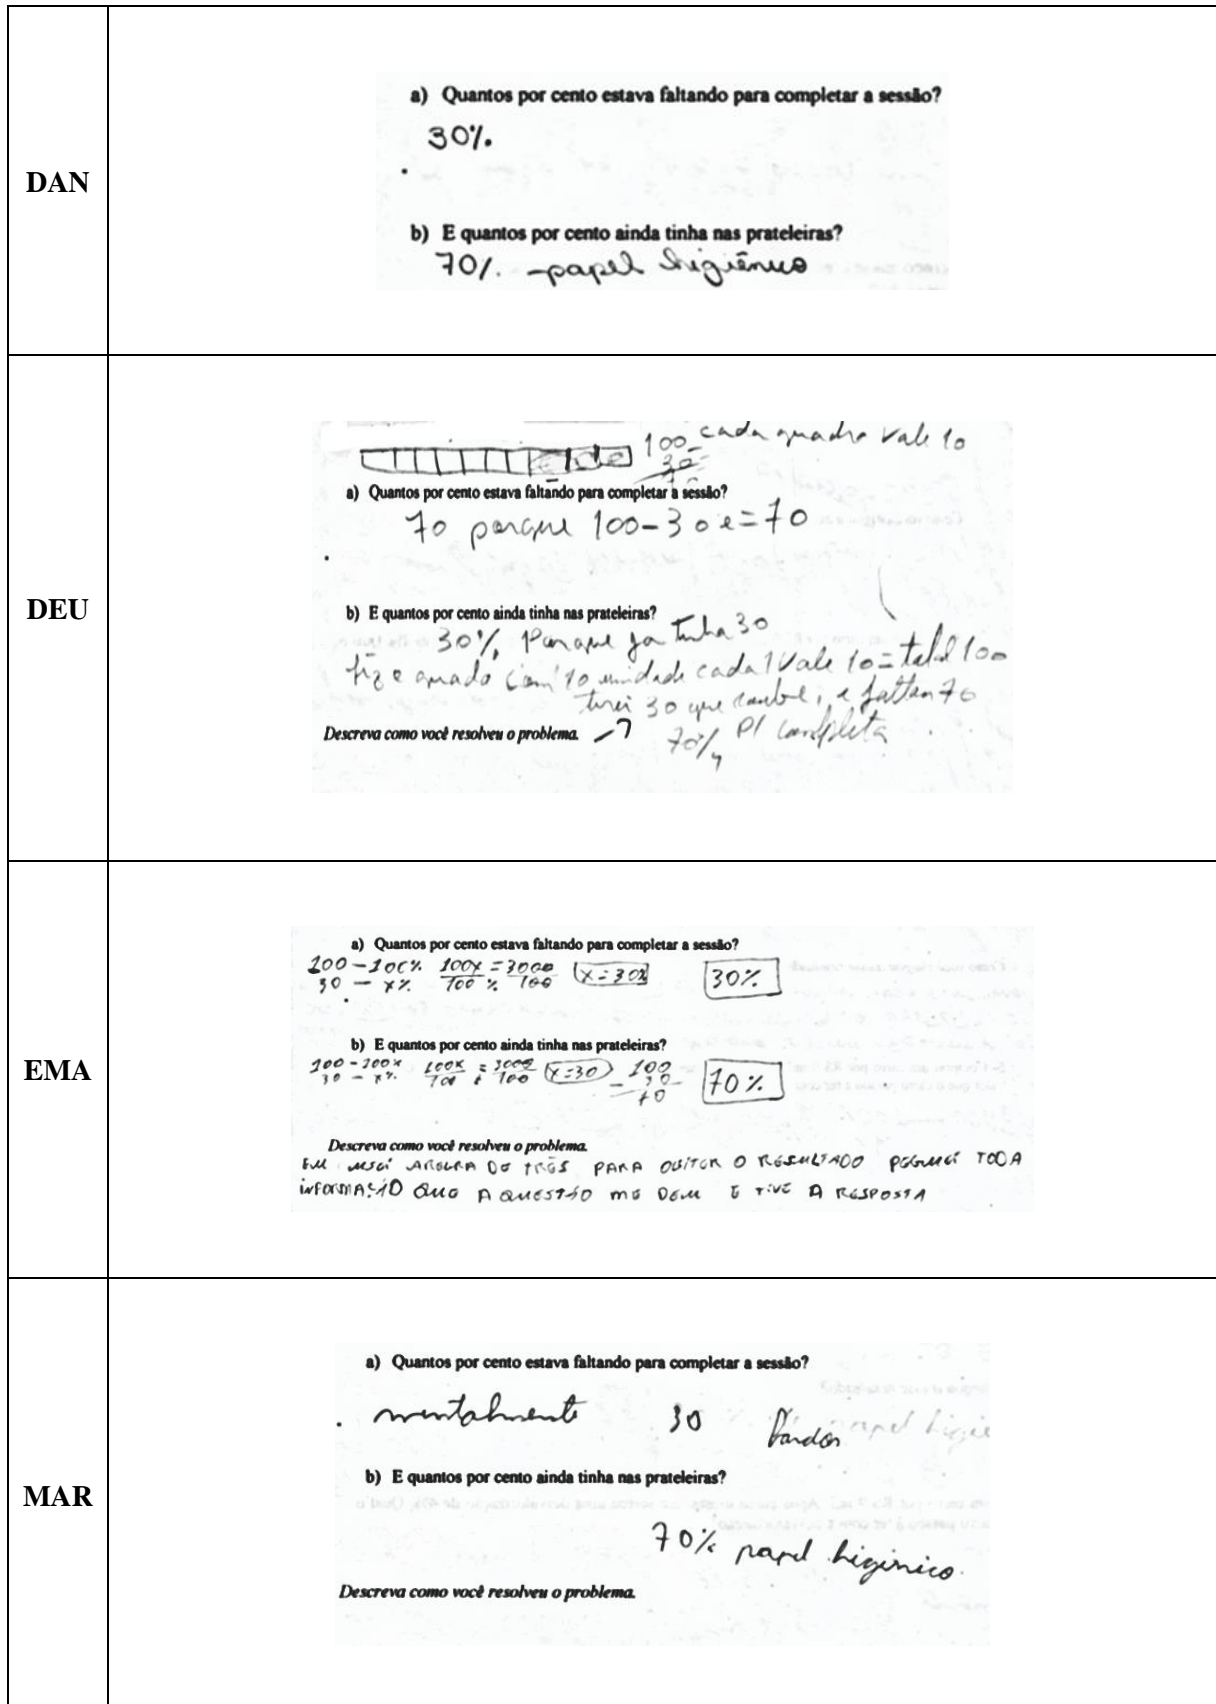 DAN
a) Quantos por cento estava faltando para completar a sessão?
30%.
b) E quantos por cento ainda tinha nas prateleiras?
70%. - papel higiênico
DEU
100 - cada quadro vale 10
30
a) Quantos por cento estava faltando para completar a sessão?
70 porque 100-30 e = 70
b) E quantos por cento ainda tinha nas prateleiras?
30%, Porque ja tinha 30
fiz o quado com 10 unidade cada 1 vale 10 = total 100
tirei 30 que e faltan 70
Descreva como você resolveu o problema.
70% P/ completa
EMA
a) Quantos por cento estava faltando para completar a sessão?
100 - 100% 100x = 3000 x = 30% 30%
30 - x% 100 % 100
b) E quantos por cento ainda tinha nas prateleiras?
100 - 100% 100x = 3000 x = 30 100 70%
30 - x% 100 100 - 30
70
Descreva como você resolveu o problema.
EU USEI AREGRA DE TRÊS PARA OBITER O RESULTADO PEGUEI TODA
INFORMAÇÃO QUE A QUESTÃO ME DEU E TIVE A RESPOSTA
MAR
a) Quantos por cento estava faltando para completar a sessão?
mentalmente 30 fardos
b) E quantos por cento ainda tinha nas prateleiras?
70% papel higinico.
Descreva como você resolveu o problema.